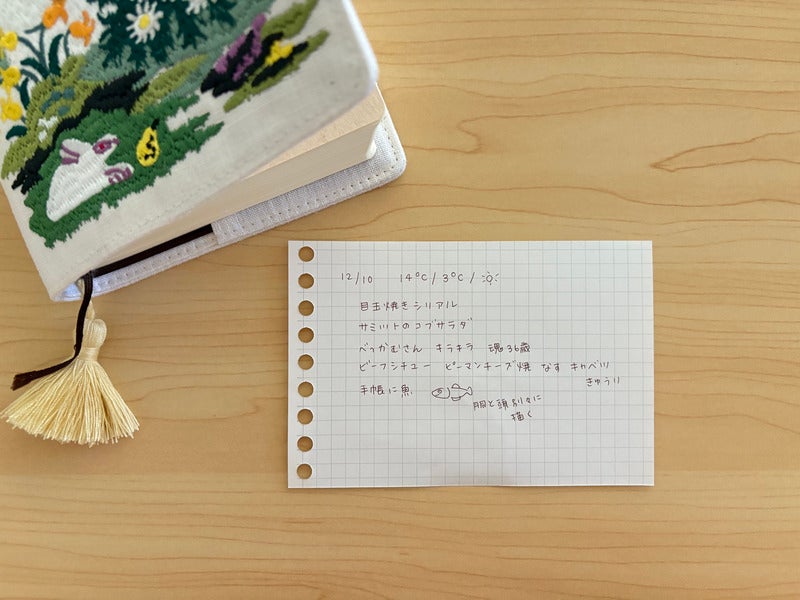 12/10 14°C / 3°C /
目玉焼き シリアル
サミットのコブサラダ
べっかむさん キラキラ 魂36歳
ビーフシチュー ピーマンチーズ焼 なす キャベツ
きゅうり
手帳に魚
胴と頭別々に
描く